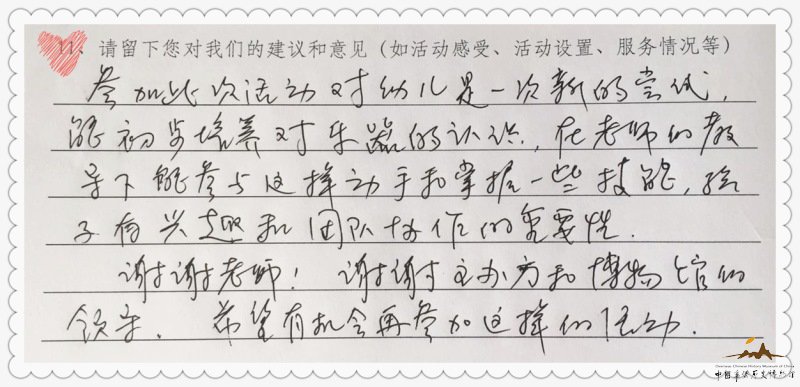 11、请留下您对我们的建议和意见（如活动感受、活动设置、服务情况等）
参加此次活动对幼儿是一次新的尝试，
能初步培养对乐器的认识，在老师的教
导下能参与这样动手和掌握一些技能，孩
子有兴趣和团队协作的重要性.
谢谢老师！谢谢主办方和博物馆的
领导. 希望有机会再参加这样的活动.
Overseas Chinese History Museum of China
中国华侨历史博物馆